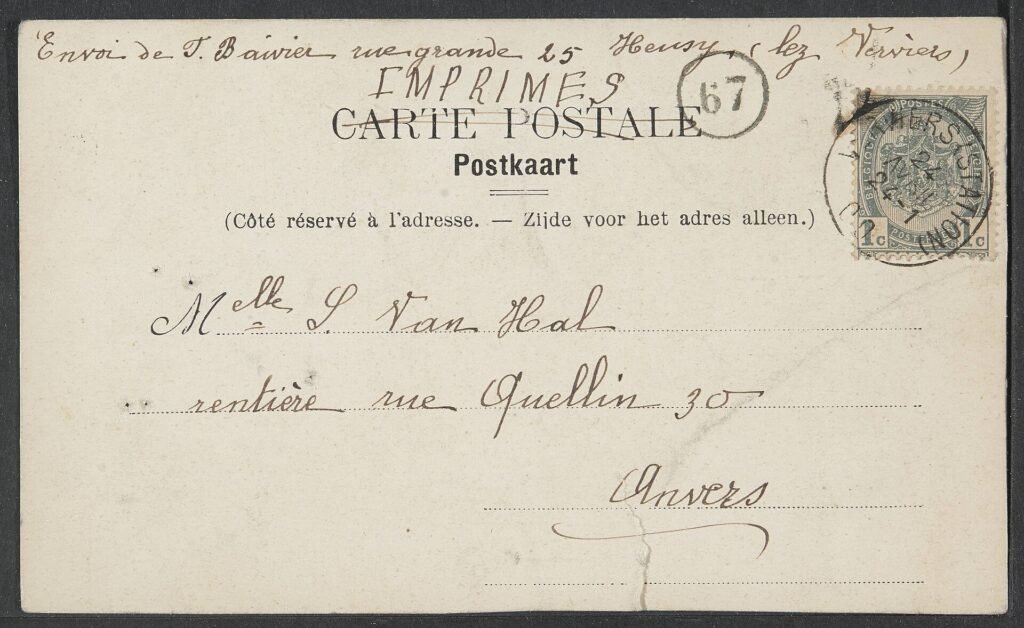 Envoi de T. Baivier rue grande 25 Heusy (lez Verviers)
IMPRIMES
67
CARTE POSTALE
Postkaart
(Côté réservé à l'adresse. — Zijde voor het adres alleen.)
POSTES
1c 1c
(STATION)
24
Melle S. Van Hal
rentière rue Quellin 30
Anvers